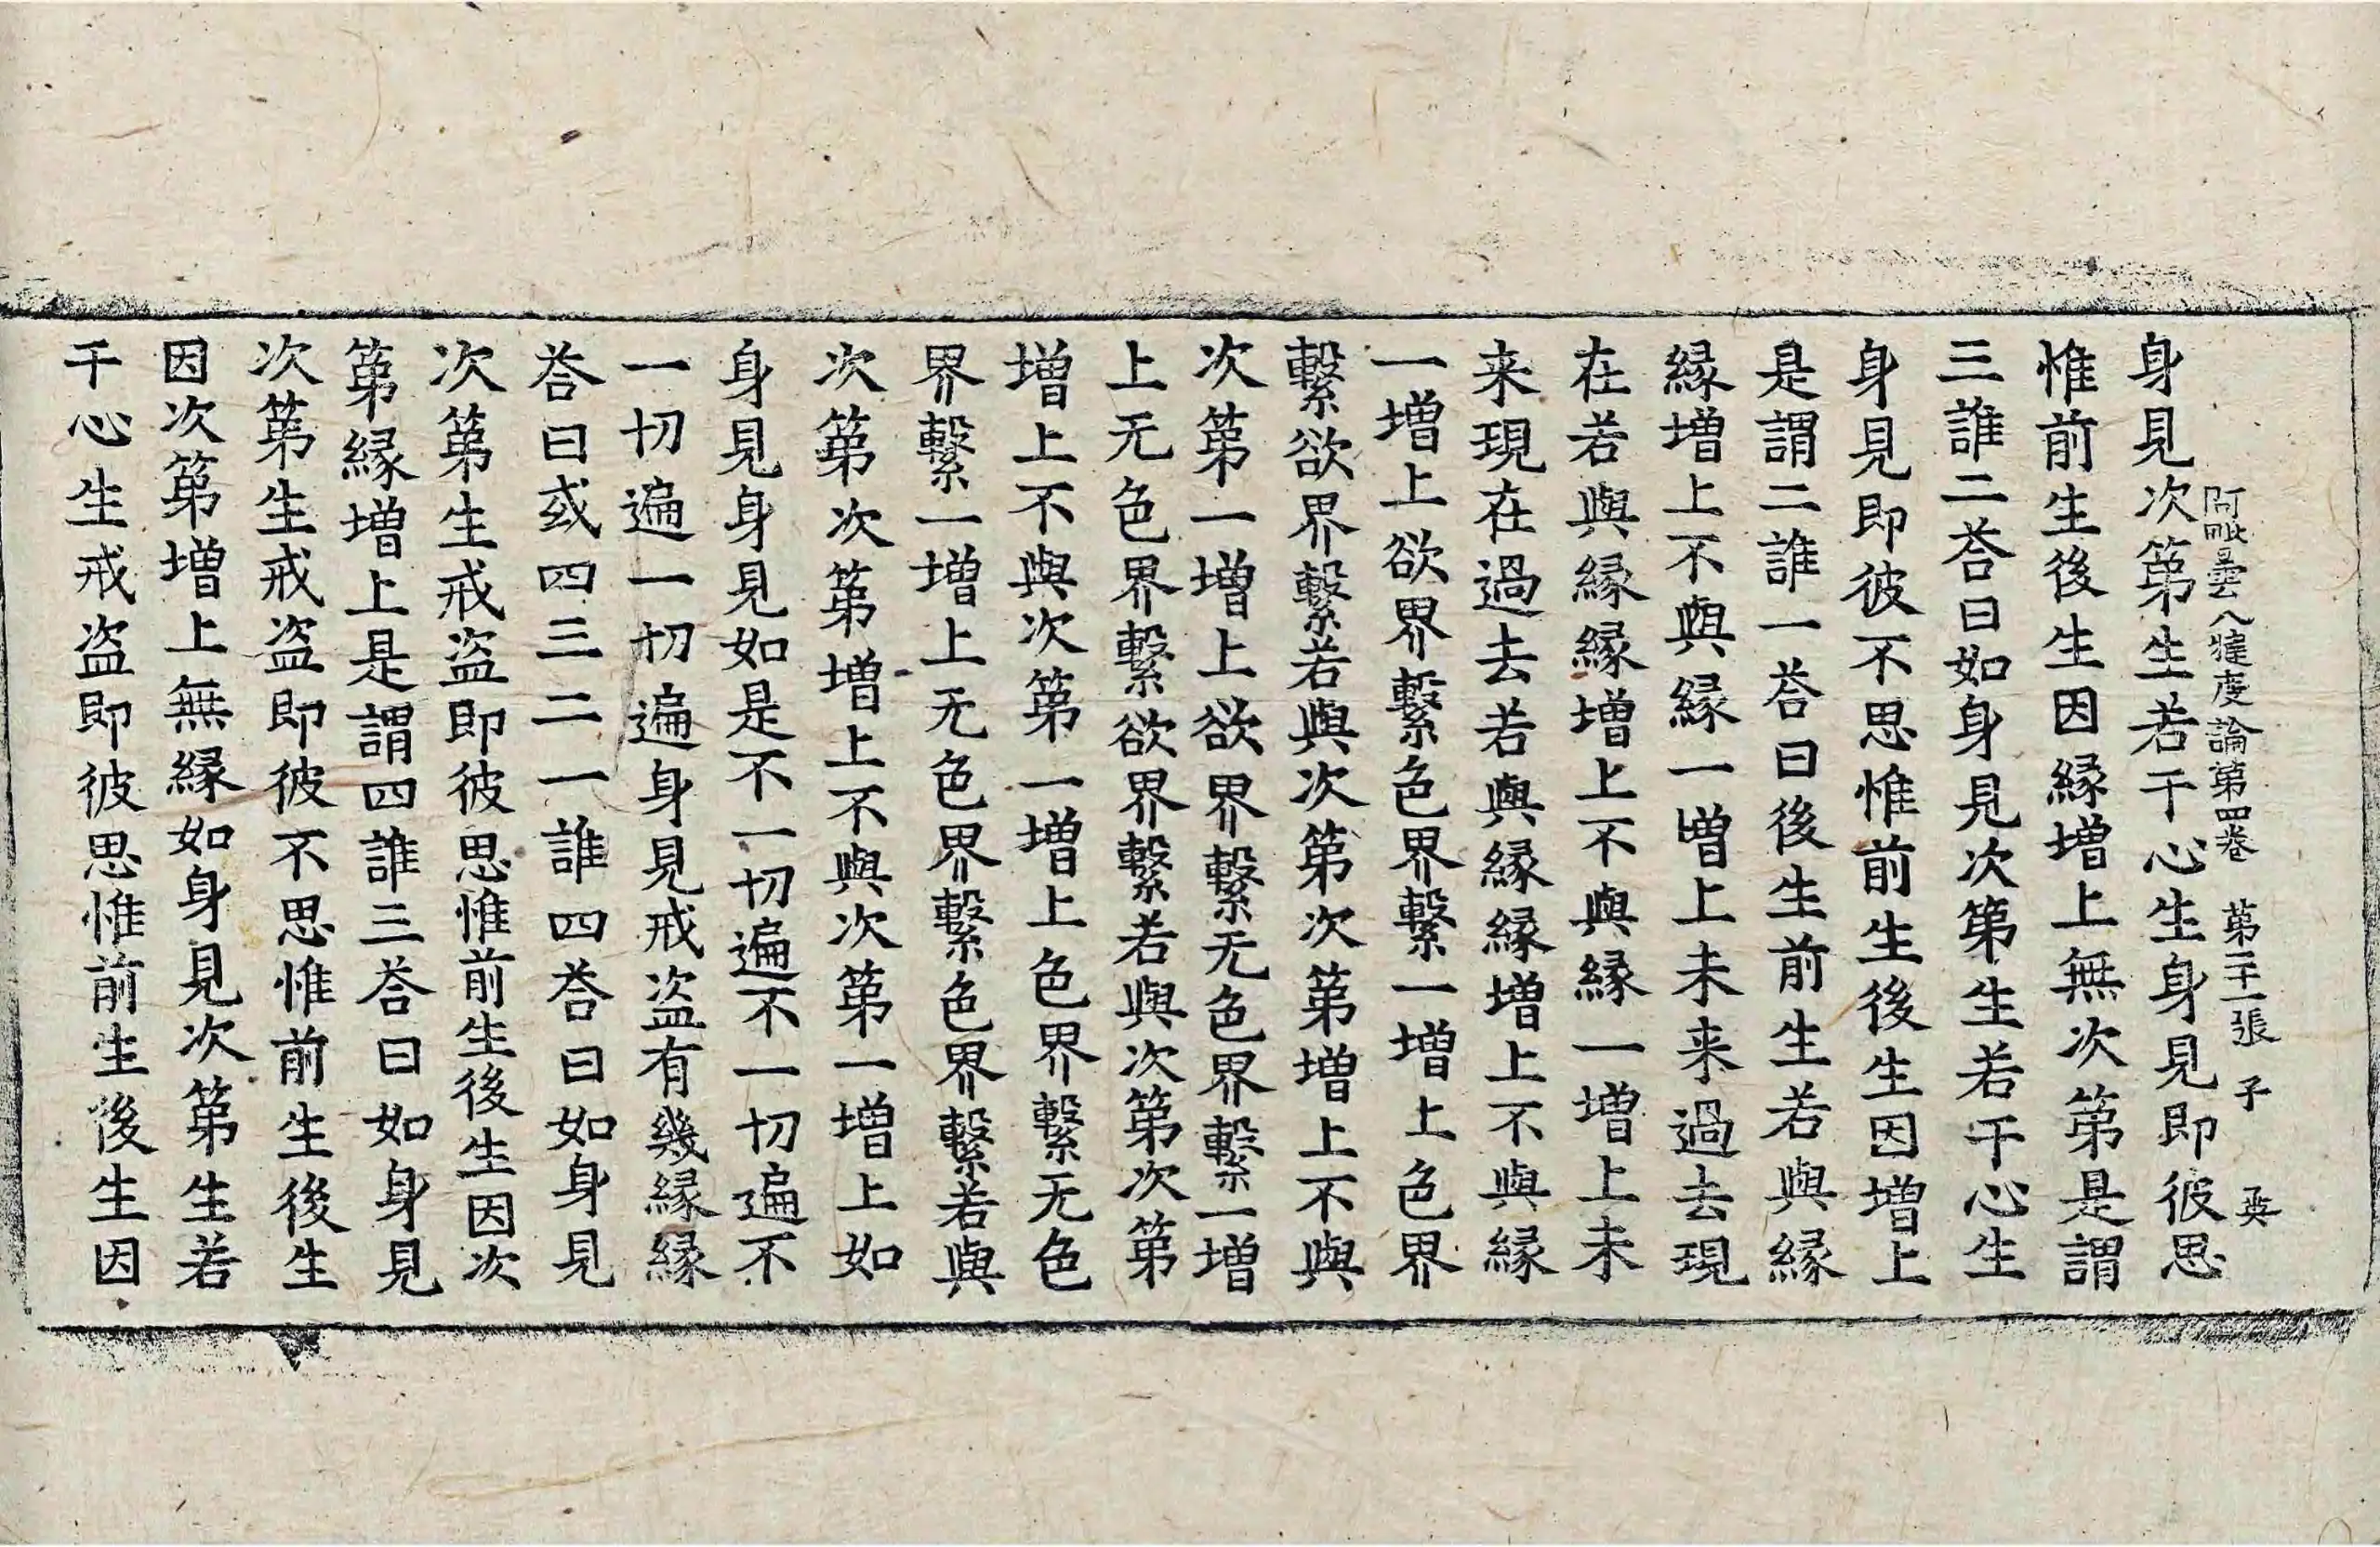 阿毗曇八犍度論第四卷　第二十一張　子　英
身見次第生若干心生身見即彼思
惟前生後生因緣增上無次第是謂
三誰二荅曰如身見次第生若干心生
身見即彼不思惟前生後生因增上
是謂二誰一荅曰後生前生若與緣
緣增上不與緣一增上未来過去現
在若與緣緣增上不與緣一增上未
来現在過去若與緣緣增上不與緣
一增上欲界繫色界繫一增上色界
繫欲界繫若與次第次第增上不與
次第一增上欲界繫无色界繫一增
上无色界繫欲界繫若與次第次第
增上不與次第一增上色界繫无色
界繫一增上无色界繫色界繫若與
次第次第增上不與次第一增上如
身見身見如是不一切遍不一切遍不
一切遍一切遍身見戒盜有幾緣緣
荅曰或四三二一誰四荅曰如身見
次第生戒盜即彼思惟前生後生因次
第緣增上是謂四誰三荅曰如身見
次第生戒盜即彼不思惟前生後生
因次第增上無緣如身見次第生若
干心生戒盜即彼思惟前生後生因